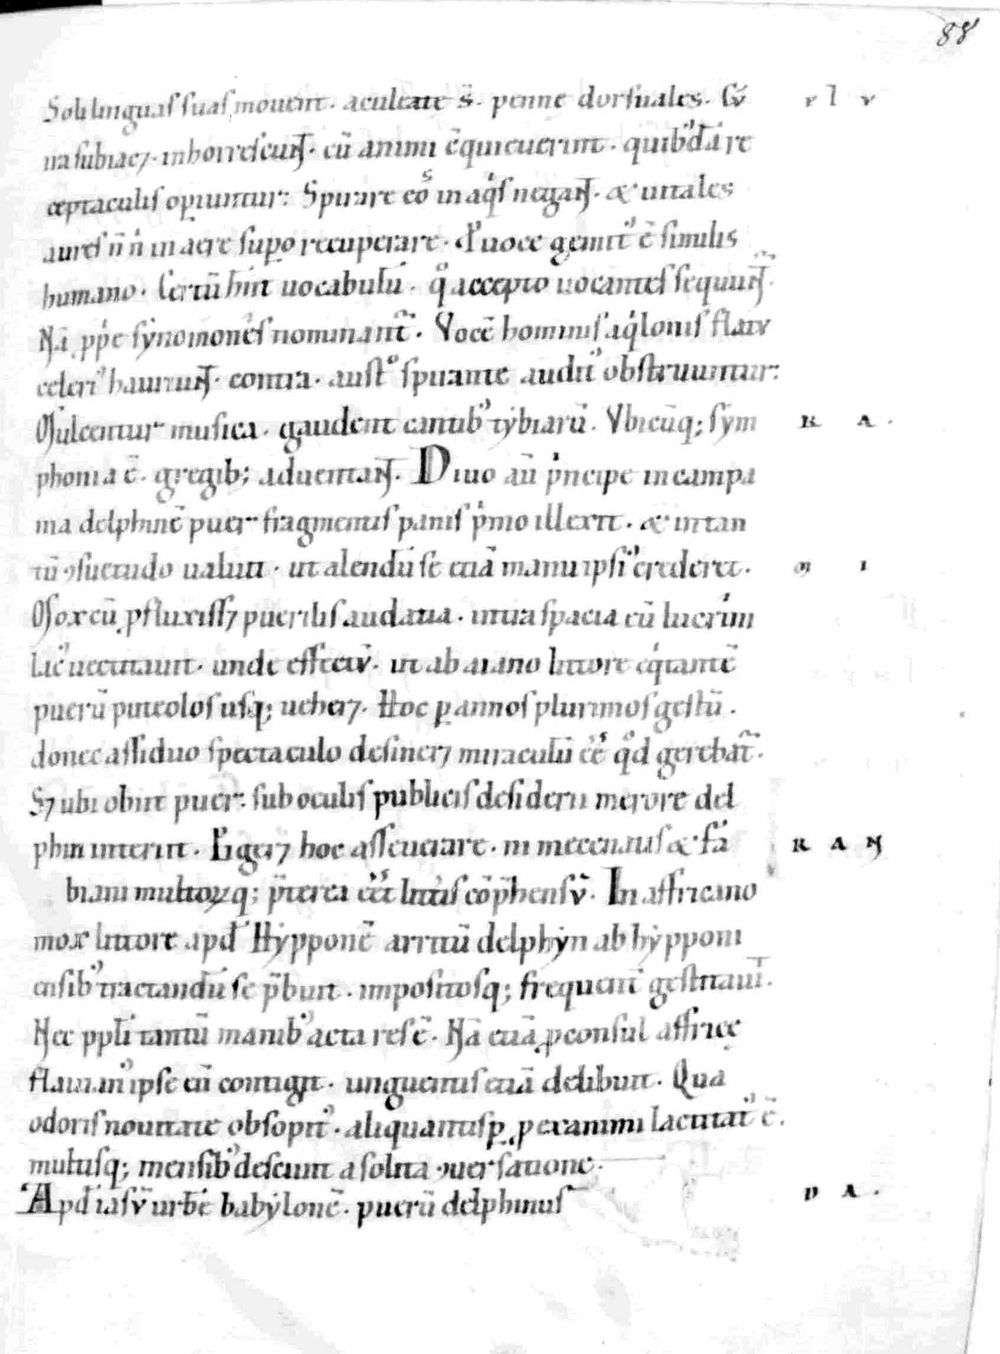 88
Soli linguas suas mouent. aculeate s̄. penne dorsuales. Cū v l v
ira subiacꝫ. inhorrescunt̄. cū animi ꝯquieuerint. quibꝰdā re
ceptaculis opiuntur: Spirare eoſ in aq̄s negant̄. & uitales
aures n̄ n̄ in aere supo recuperare. P uoce gemitꝰ ē similis
humano. Certū hn̄t uocabulū. qͦ accepto uocantes sequunt̄.
Nā ꝓp̄e sẏmones nominant̄. Voce hominis aq̇lonis flatu
celeriꝰ hauriunt̄. contra. austͦ spirante auditꝰ obstruuntur:
Mulcentur musica. gaudent cantibꝰ tẏbiarū. Vbicūq; sẏm R A .
phonia ē. gregib; aduentant̄. Diuo au̅ pͥncipe in campa
nia delphinē puer fragmentis panis pͥmo illexit. & in tan
tū ꝯsuetudo ualuit. ut alendū se etiā manu ipsiꝰ crederet. M I
Mox cū ꝓfluxissꝫ puerilis audatia. intra spacia cū lucrini
lacꝰ uectitauit. unde effectū. ut ab aiano littore eqͥtante
puerū puteolos usq; uehetꝫ. Hoc ꝑ annos plurimos gestū.
donec assiduo spectaculo desineretꝫ miraculū ēē qͦd gerebat̄.
Sꝫ ubi obiit puer: sub oculis publicis desiderii merore del
phin interiit. Pigerꝫ hoc asseuerare. ni mecenatis & fa R A N
biani multoꝝq; p̄terea eēt litt̄is cōp̄hensū. In affricano
mox littore apd̄ Hẏpponē arritū delphẏn ab hẏpponi
ensibꝰ tractandū se p̄buit. impositosq; frequent̄ gestitauit̄.
Nec ppl̄i tantū manibꝰ acta res ē. Nā etiā ꝓconsul affrice
flauianꝰ ipse eū contigit. unguentis etiā delibuit. Qua
odoris nouitate obsopitꝰ. aliquantisꝑ ꝓ exanimi iactitatꝰ ē.
multisq; mensibꝰ desciuit a solita ꝯuersatione.
Apd̄ iasū urbē babẏlonē. puerū delphinus D A .